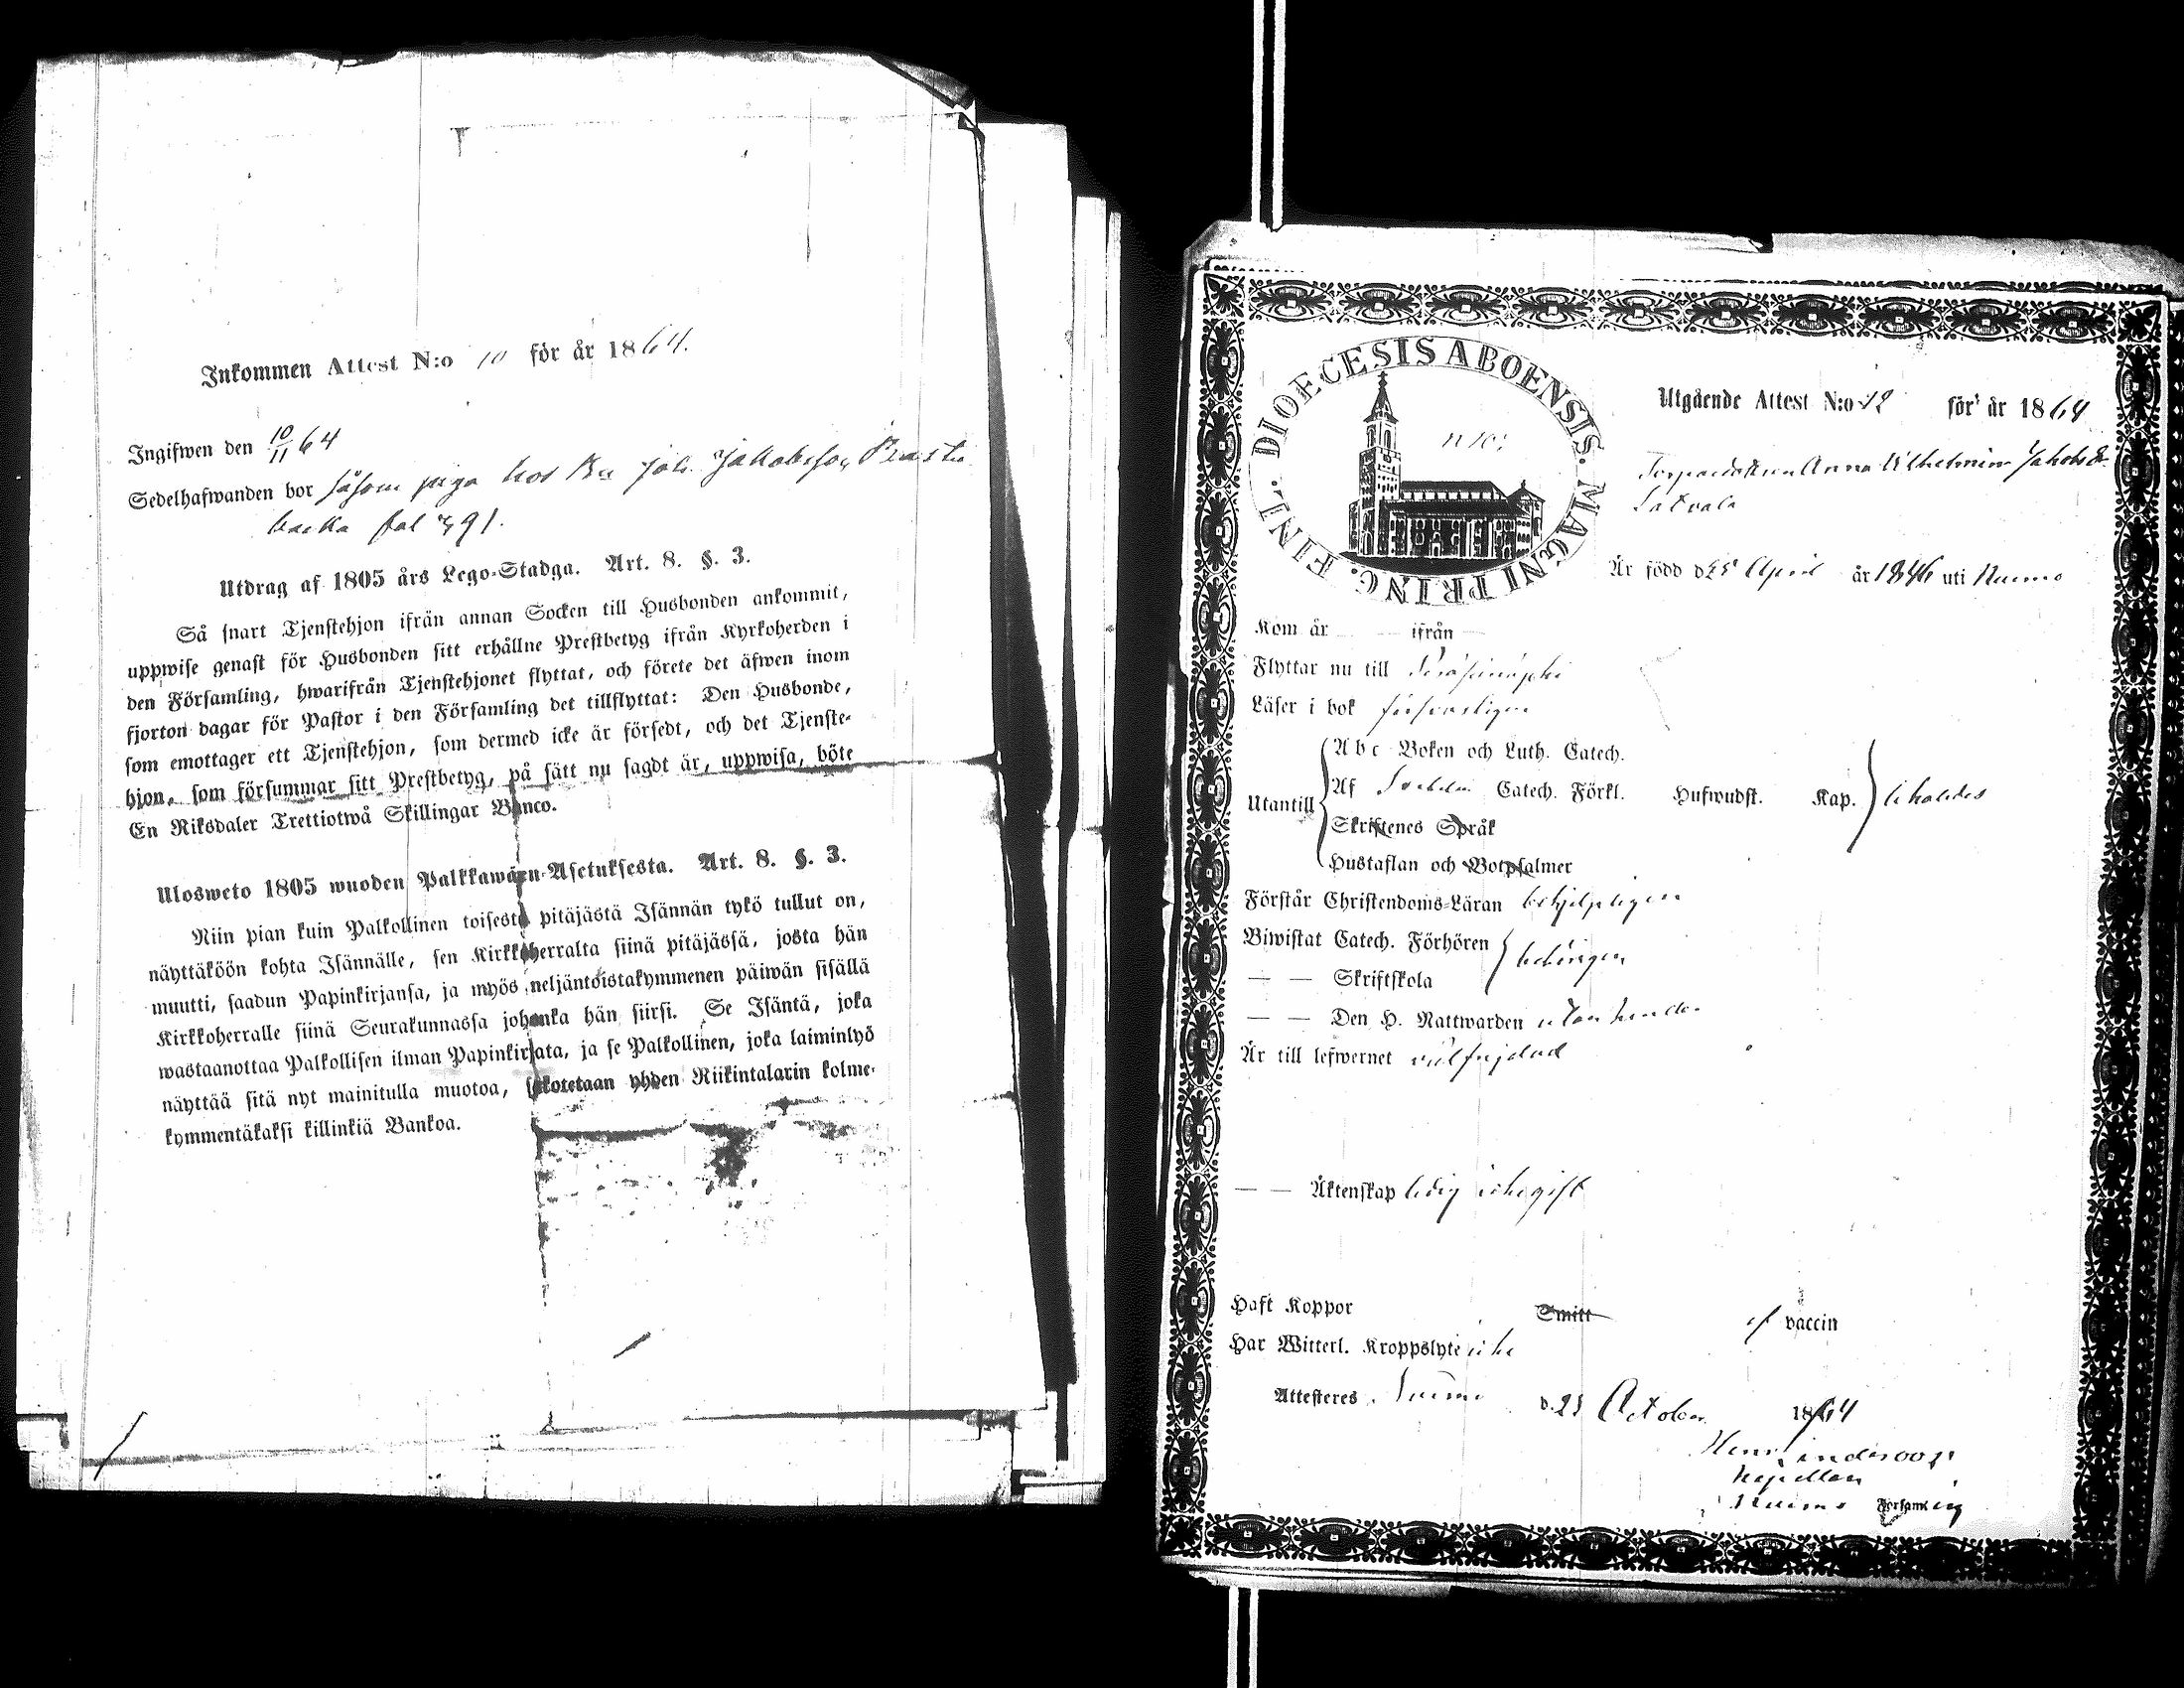 Inkommen Attest N:o 10 för år 1864.
Ingifwen den 10/11 64
Sedelhafwanden bor såsom piga hos Joh. Jakobsson
backa fol 391.
Utdrag af 1805 års Lego-Stadga. Art. 8. §. 3.
Så snart Tjenstehjon ifrån annan Socken till Husbonden ankommit,
uppwise genast för Husbonden sitt erhållne Prestbetyg ifrån Kyrkoherden i
den Församling, hwarifrån Tjenstehjonet flyttat, och förete det äfwen inom
fjorton dagar för Pastor i den Församling det tillflyttat: Den Husbonde,
som emottager ett Tjenstehjon, som dermed icke är försedt, och det Tjenste-
hjon, som försummar sitt Prestbetyg, på sätt nu sagdt är, uppwisa, böte
En Riksdaler Trettiotwå Skillingar Banco.
Ulosweto 1805 wuoden Palkkawäen-Asetuksesta. Art. 8. §. 3.
Niin pian kuin Palkollinen toisesta pitäjästä Isännän tykö tullut on,
näyttäköön kohta Isännälle, sen Kirkkoherralta siinä pitäjässä, josta hän
muutti, saadun Papinkirjansa, ja myös neljäntoistakymmenen päiwän sisällä
Kirkkoherralle siinä Seurakunnassa johonka hän siirsi. Se Isäntä, joka
wastaanottaa Palkollisen ilman Papinkirjata, ja se Palkollinen, joka laiminlyö
näyttää sitä nyt mainitulla muotoa, sakotetaan yhden Riikintalarin kolme-
kymmentäkaksi killinkiä Bankoa.
DIOECESIS ABOENSIS. MAGNI PRINC. FINL.
N 10;
Utgående Attest N:o 12 för år 1864
Torparedottren Anna Wilhelmina Jakobsdr
Latvala
Är född d 25 April år 1846 uti Nurmo
Kom år — ifrån —
Flyttar nu till Peräseinäjoki
Läser i bok försvarligen
Utantill
Abc Boken och Luth. Catech.
Af Svebelii Catech. Förkl. Hufwudst. Kap.
Skriftenes Språk
Hustaflan och Botpsalmer
Förstår Christendoms-Läran behjelpligen
Biwistat Catech. Förhören behörigen
— — Skriftskola
— — Den H. Nattwarden utan hinder
Är till lefwernet välfrejdad
— — Äktenskap ledig icke gift
Haft Koppor Smitt af vaccin
Har Witterl. Kroppslyte icke
Attesteres. Nurmo d. 25 October 1864
Kapellan
Nurmo Församling